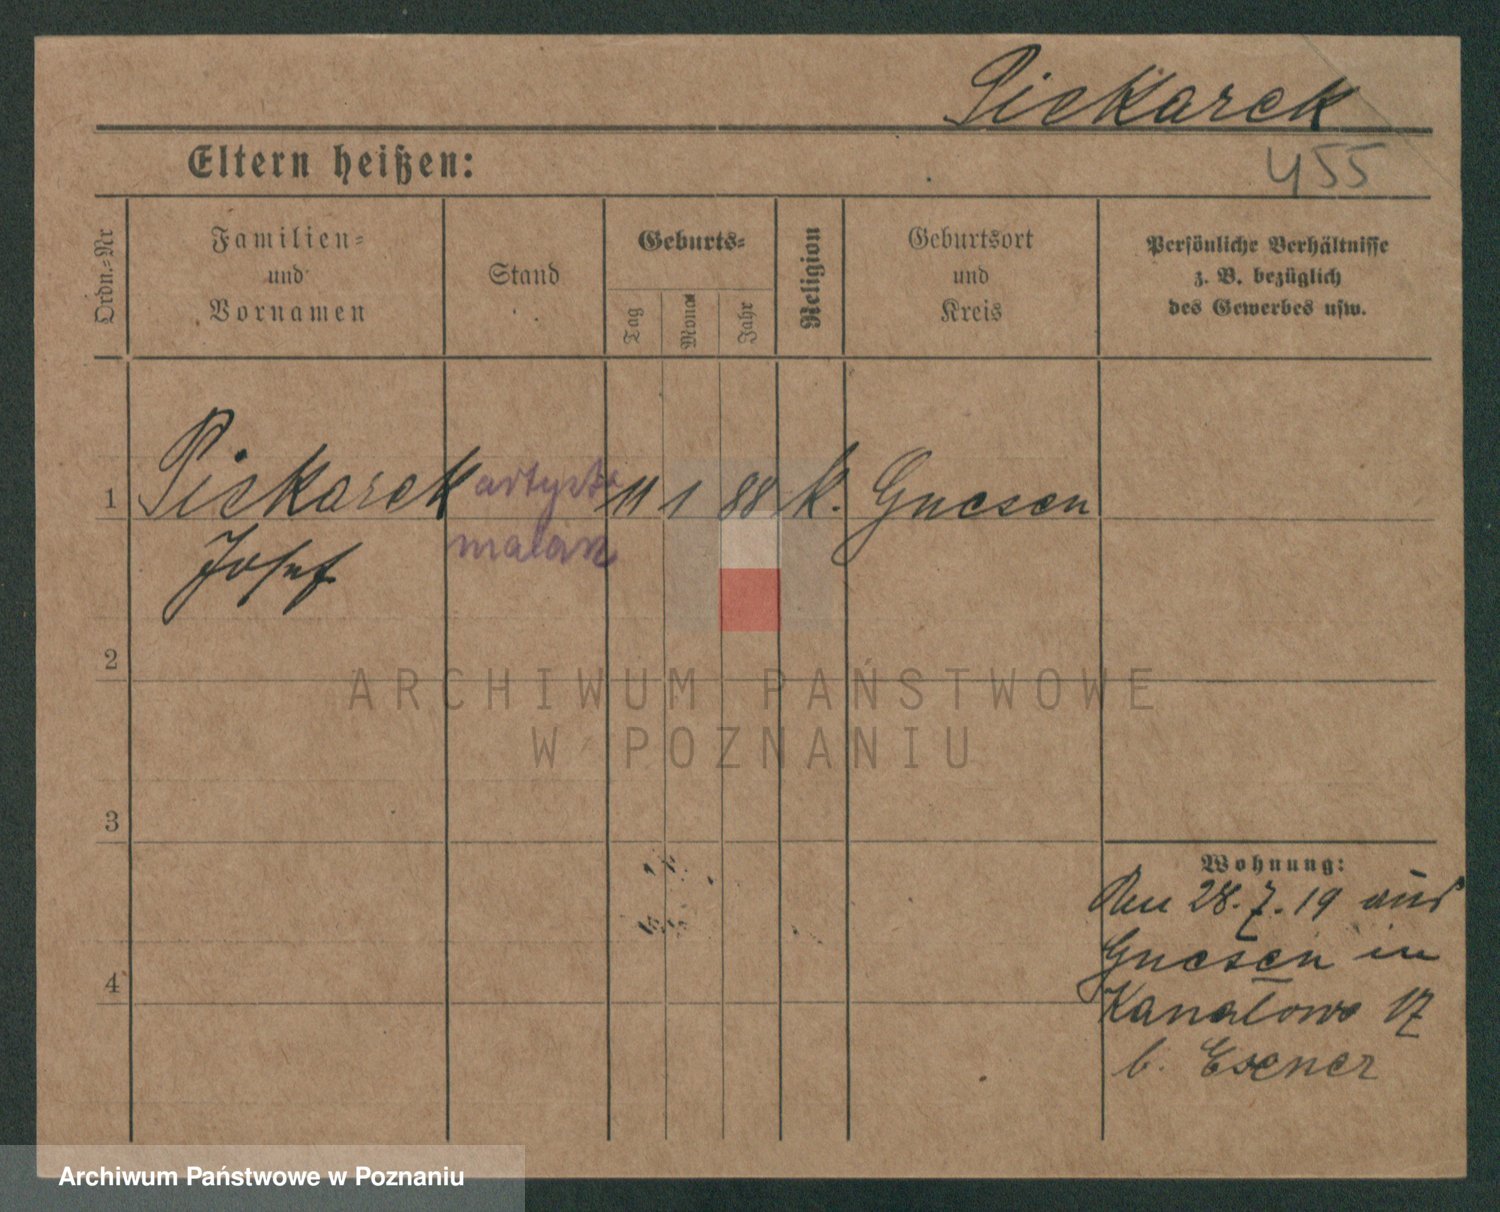 Piekarek
455
Eltern heißen:
Ordn.-Nr
Familien-
und
Vornamen
Stand
Geburts-
Tag
Monat
Jahr
Religion
Geburtsort
und
Kreis
Persönliche Verhältnisse
z. B. bezüglich
des Gewerbes usw.
1 Piekarek artysta 11 1 88 k. Gnesen
Josef malarz
2
ARCHIWUM PAŃSTWOWE
W POZNANIU
3
Wohnung:
Den 28.7.19 aus
Gnesen in
4
Kanałowa 17
b. Exner
Archiwum Państwowe w Poznaniu